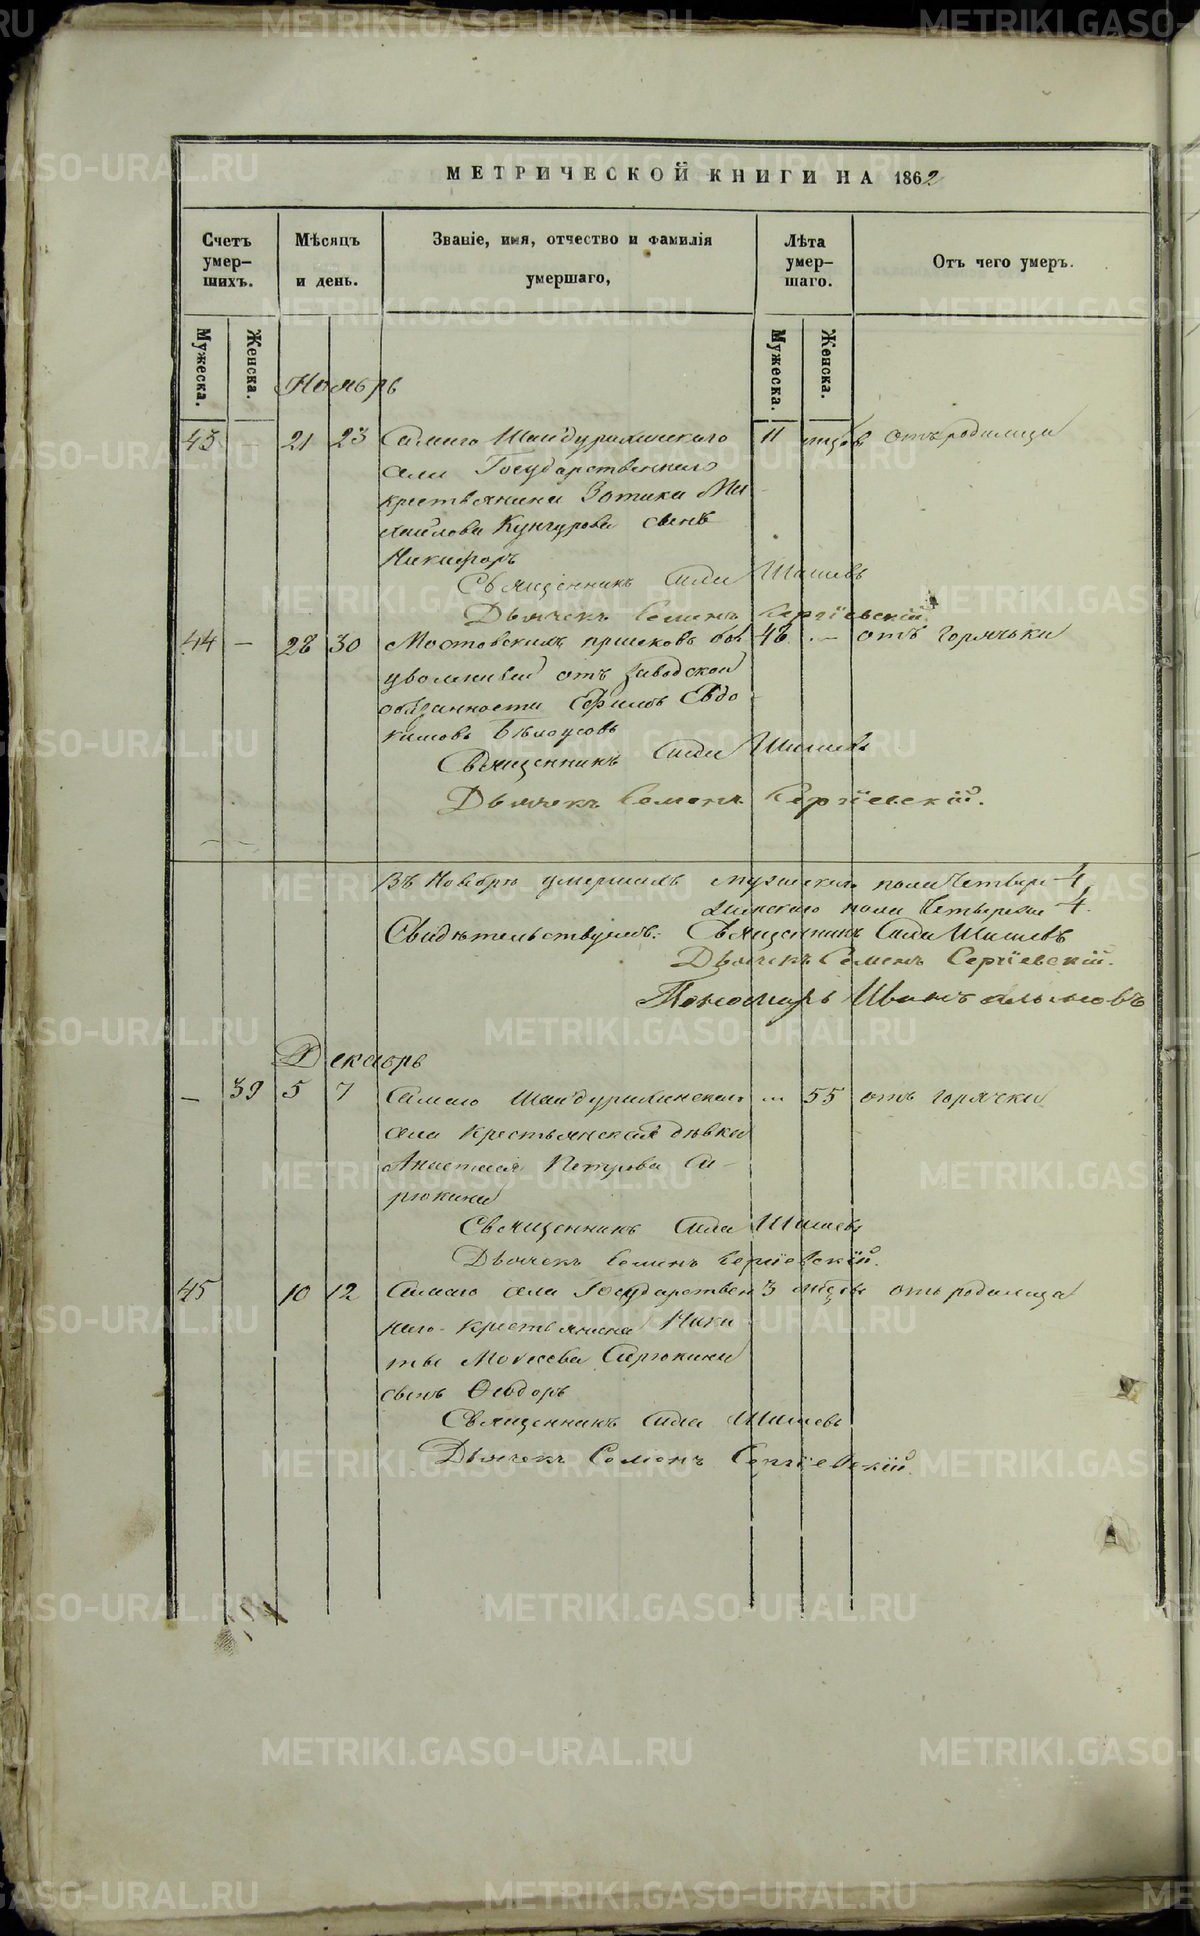 МЕТРИЧЕСКОЙ КНИГИ НА 1862
Счетъ умер–шихъ.
Мѣсяцъ и день.
Званіе, имя, отчество и фамилія умершаго,
Лѣта умер–шаго.
Отъ чего умеръ.
Мужеска.
Женска.
Мужеска.
Женска.
Ноябрь
43 – 21 23 Самаго Шайдурихинскаго 11 отъ родимца
села Государственнаго
крестьянина Зотика Ми
хайлова Кунгурова сынъ
Никифоръ
Священникъ Сила Шишевъ
Дьячекъ Семенъ Сергіевскій.
44 – 28 30 Мостовскихъ пріисковъ 48 – отъ горячьки
уволенный отъ заводской
обязанности Ефимъ Евдо
кимовъ Бѣлоусовъ
Священникъ Сила Шишевъ
Дьячекъ Семенъ Сергіевскій.
Въ Ноябрѣ умершихъ мужеска пола Четыре 4,
женскаго пола Четыре 4.
Свидѣтельствуемъ: Священникъ Сила Шишевъ
Дьячекъ Семенъ Сергіевскій.
Пономарь Иванъ
Декабрь
– 39 5 7 Самаго Шайдурихинскаго – 55 отъ горячки
села крестьянская дѣвка
Анастасія Петрова Си–
рюкина
Священникъ Сила Шишевъ
Дьячекъ Семенъ Сергіевскій.
45 10 12 Самаго села Государствен 3 отъ родимца
наго крестьянина Ники
ты Моисеева Сирюкина
сынъ Ѳеодоръ
Священникъ Сила Шишевъ
Дьячекъ Семенъ Сергіевскій
METRIKI.GASO-URAL.RU